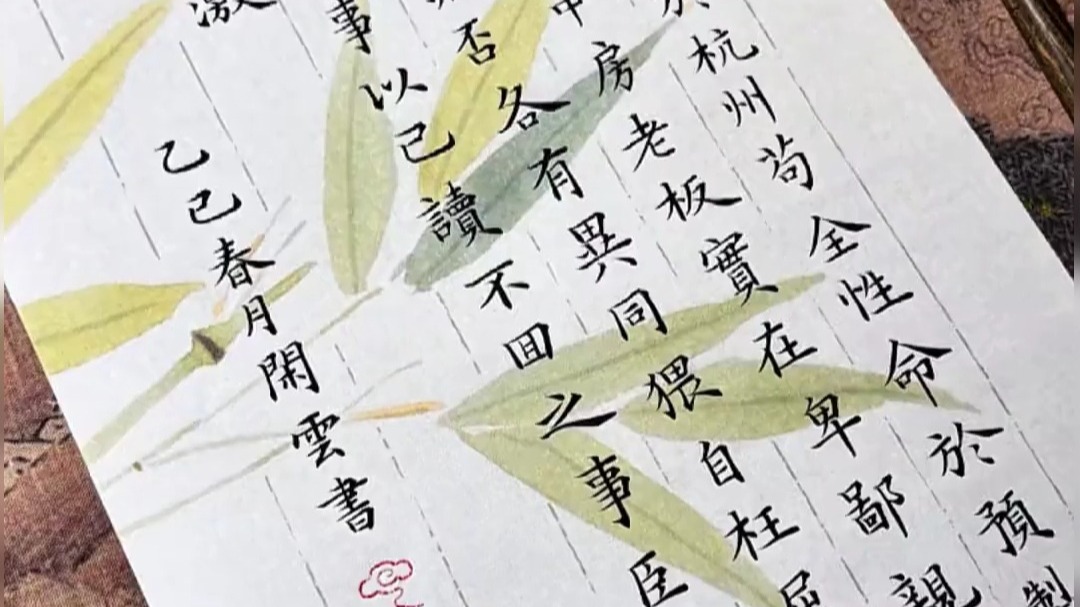 杭州苟全性命於預制
中房老板實在卑鄙親
否各有異同猥自枉屈
事以已讀不回之事臣
激
乙巳春月閑雲書